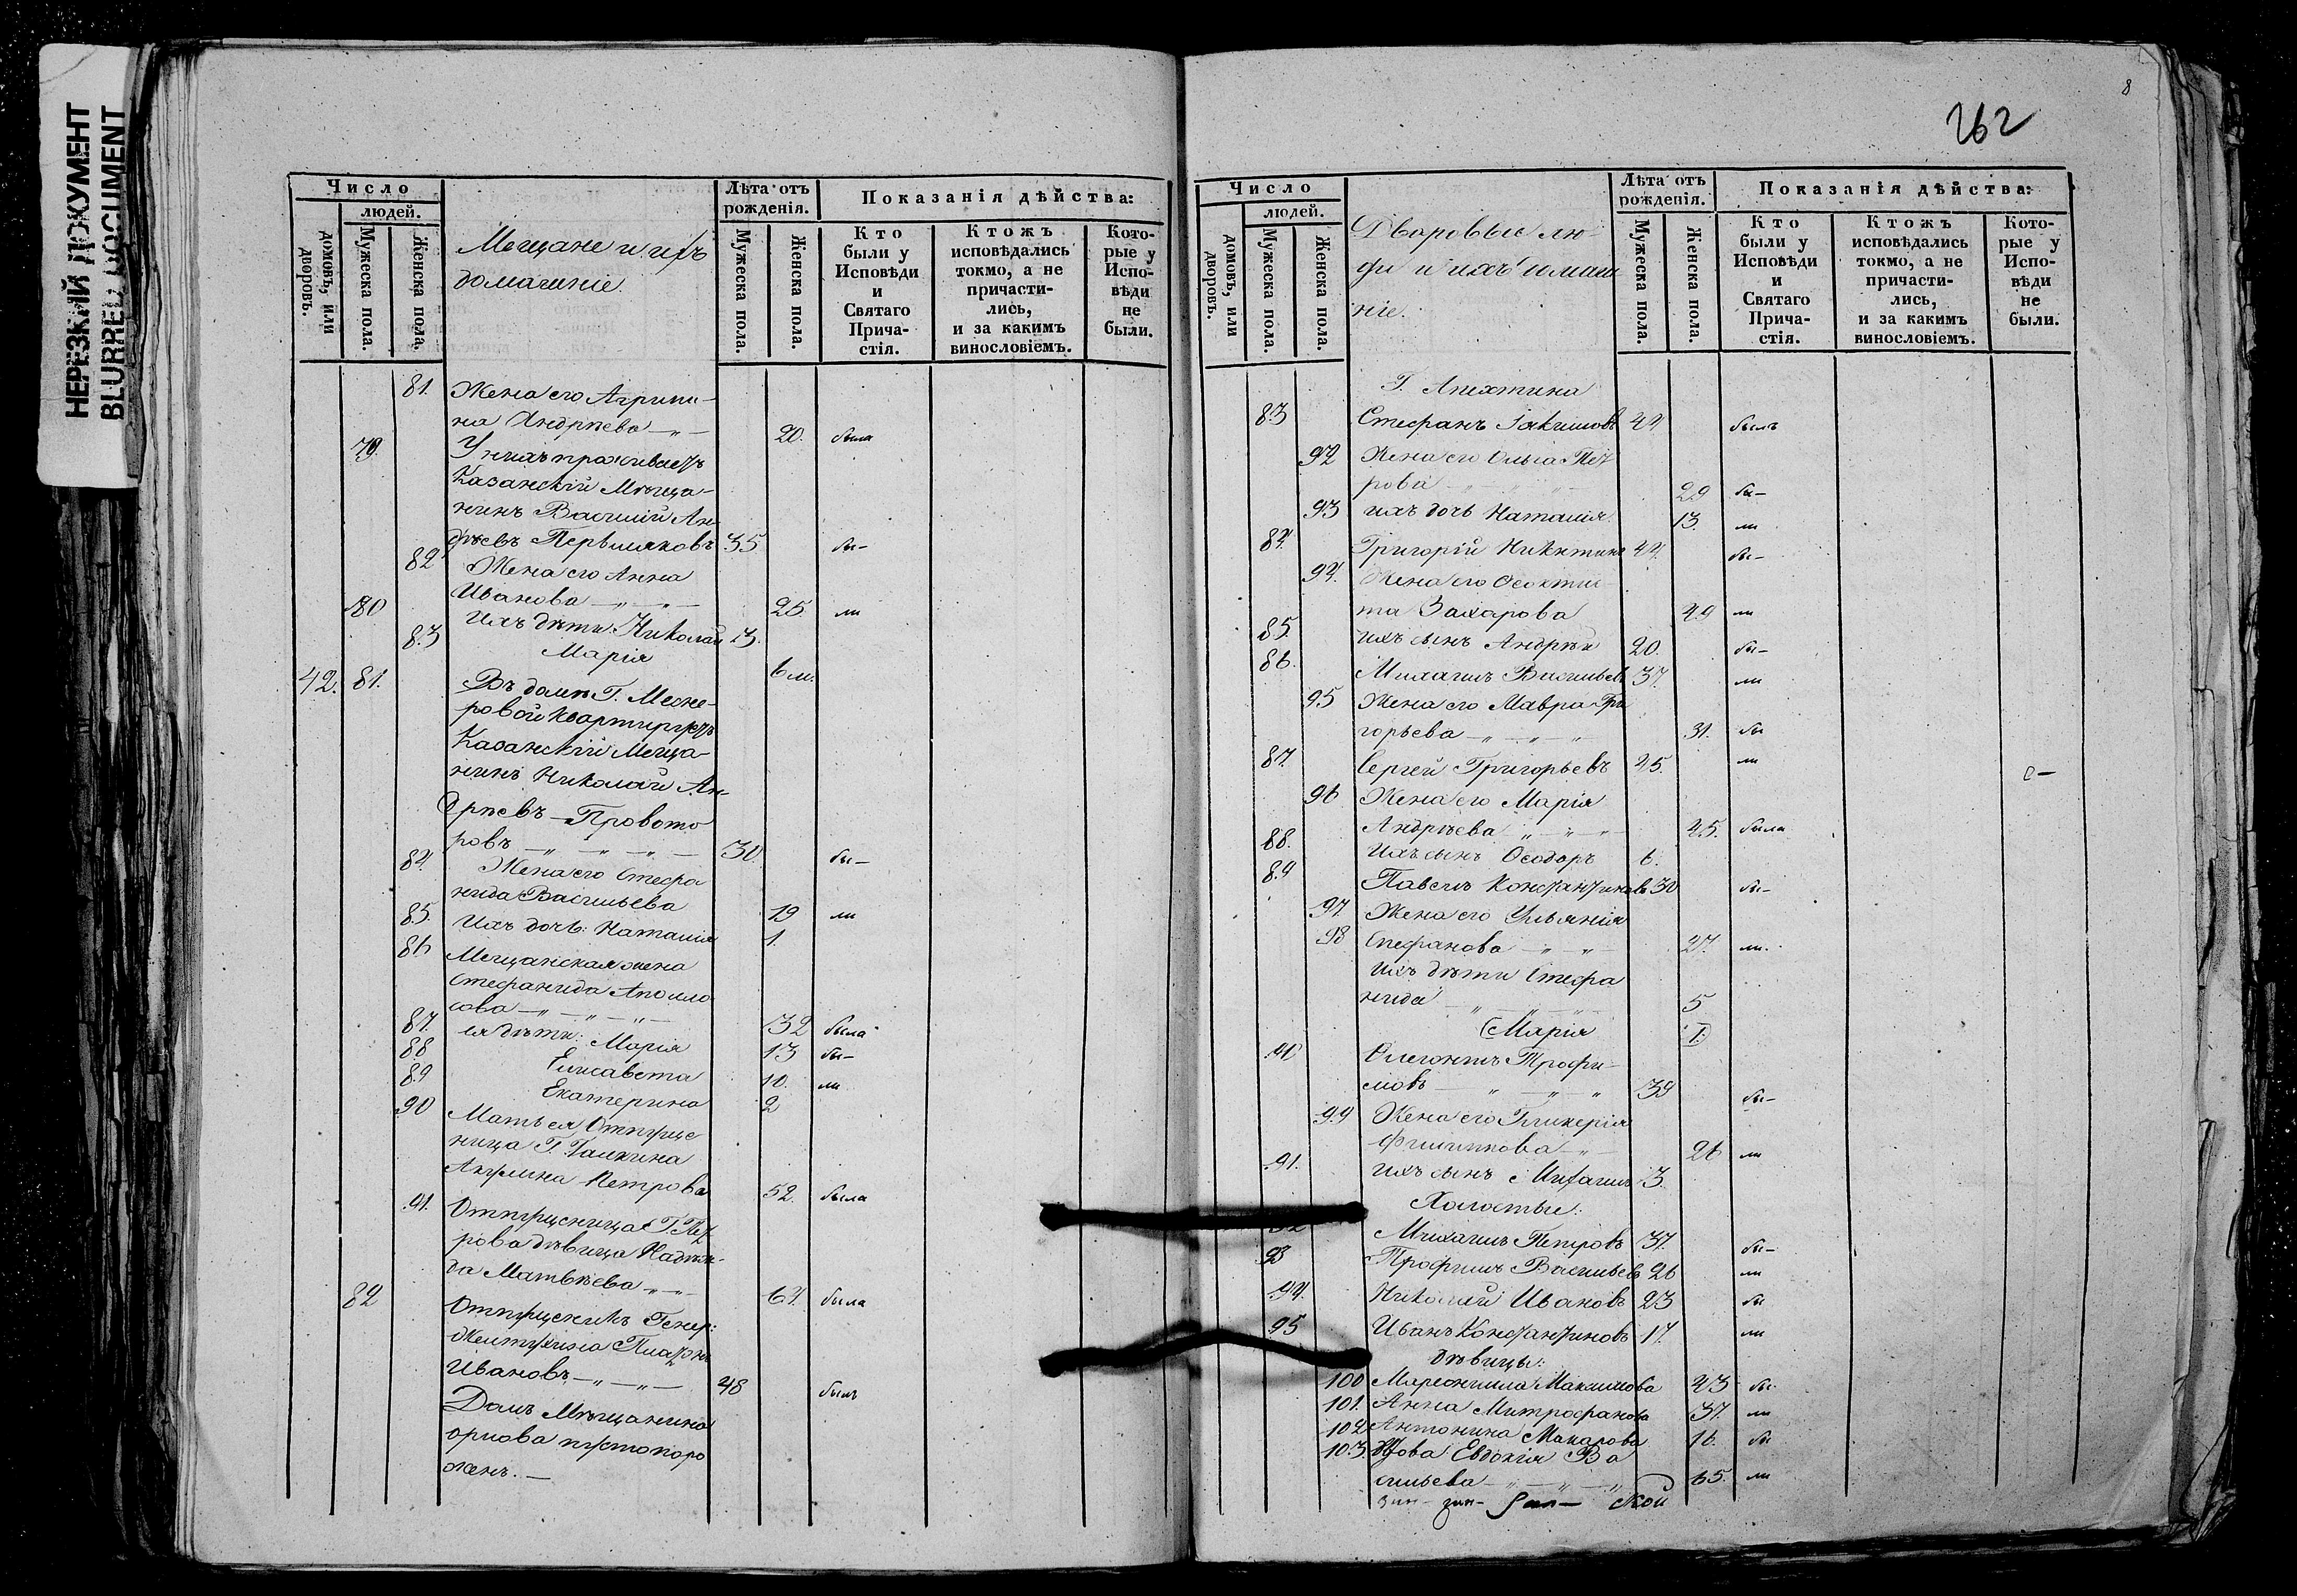 НЕРЕЗКИЙ ДОКУМЕНТ
BLURRED DOCUMENT
Число
людей.
домовъ, или дворовъ.
Мужеска пола.
Женска пола.
Мещане и ихъ
домашніе.
Лѣта отъ рожденія.
Мужеска пола.
Женска пола.
Показанія дѣйства:
Кто были у Исповѣди и Святаго Прича-стія.
Ктожъ исповѣдались токмо, а не причасти-лись, и за какимъ винословіемъ.
Кото-рые у Испо-вѣди не были.
81. Жена его Агрипи-
на Андрѣева 20. была
79. У нихъ проживаетъ
Казанскій Мѣща-
нинъ Василій Ан-
дрѣевъ 35 бы-
82 Жена его Анна
Иванова 25. ли
80 Ихъ дѣти: Николай 13.
83 Марія 6 м.
42. 81. Въ домѣ Г.
ровой квартируетъ
Казанскій Меща-
нинъ Николай Ан-
дрѣевъ Провото
ровъ 30. бы-
84. Жена его Стефа
нида Васильева 19 ли
85. Ихъ дочь: Наталія 1.
86 Мещанская жена
Стефанида Аполло
сова 32 была
87. ея дѣти: Марія 13 бы-
88 Елисавета 10. ли
89 Екатерина 2
90 Мать ея Отпуще
ница Г. Галкина
Акулина Петрова 52. была
91. Отпущеница Г. Пет
рова дѣвица Надеж-
да Матвѣева 64. была
82 Отпущеникъ Генер:
Желтухина Платонъ
Ивановъ 48 былъ
Домъ Мѣщанина
Орлова пустопоро
женъ.
8
262
Число
людей.
домовъ, или дворовъ.
Мужеска пола.
Женска пола.
Дворовые лю
ди и ихъ домаш
ніе.
Лѣта отъ рожденія.
Мужеска пола.
Женска пола.
Показанія дѣйства:
Кто были у Исповѣди и Святаго Прича-стія.
Ктожъ исповѣдались токмо, а не причасти-лись, и за какимъ винословіемъ.
Кото-рые у Испо-вѣди не были.
Г. Апехтина
83 Стефанъ Іакимовъ 44 былъ
92 Жена его Ольга Пет
рова 29 бы-
93 ихъ дочь Наталія 13. ли
84. Григорій Никитинъ 44. бы-
94. Жена его Феокти
та Захарова 49 ли
85. ихъ сынъ Андрѣй 20. бы-
86. Михаилъ Васильевъ 37. ли
95 Жена его Мавра Гри
горьева 31. бы
87. Сергѣй Григорьевъ 45. ли
96 Жена его Марія
Андрѣева 45. была
88. Ихъ сынъ Ѳеодоръ 6.
89 Павелъ Константиновъ 30 бы-
97. Жена его Ульянія
98 Стефанова 27. ли
Ихъ дѣти Стефа
нида 5
Марія 1.
90 Флегонтъ Трофи
мовъ 39 бы-
99 Жена его Гликерія
Филиппова 26 ли
91. Ихъ сынъ Михаилъ 3.
Холостые:
92 Михаилъ Петровъ 37. бы-
93 Трофимъ Васильевъ 26 ли
94. Николай Ивановъ 23 бы
95 Иванъ Константиновъ 17. ли
дѣвицы:
100 Мареонилла Максимова 43 бы
101. Анна Митрофанова 37. ли
102 Антонина Макарова 16. бы
103. Вдова Евдокія Ва
сильева 65. ли
ской